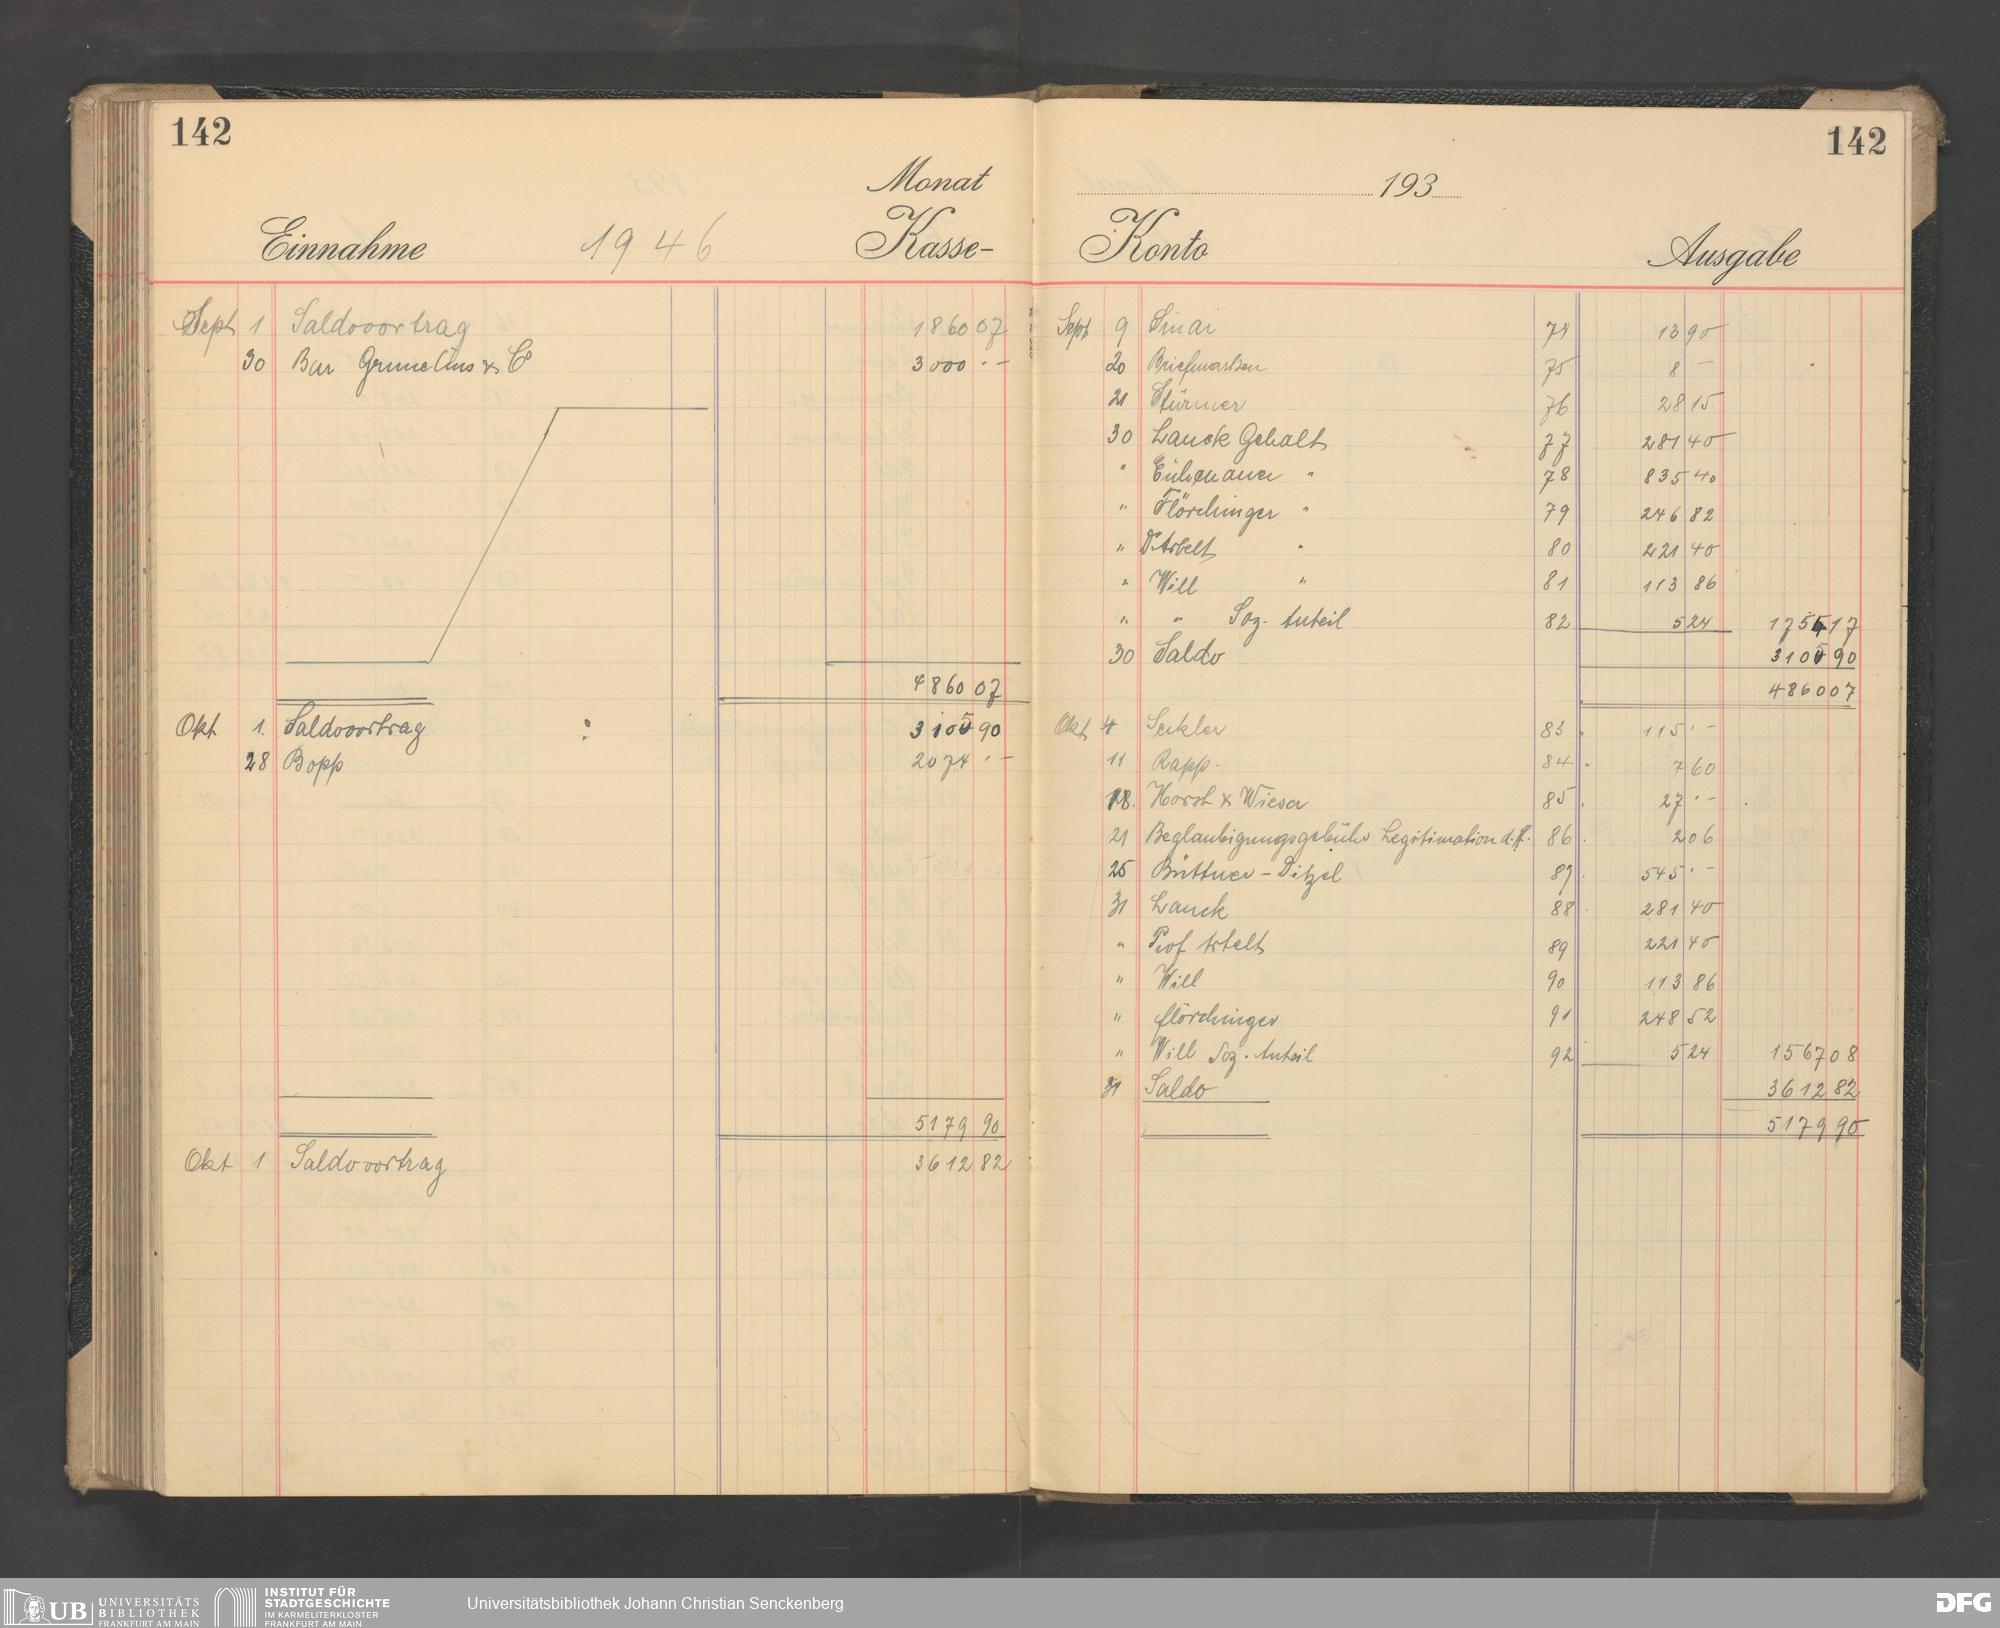 142
Monat
Einnahme 1946 Kasse-
Sept 1 Saldovortrag 1860 07
30 Bar Grunelius & Co 3000 . –
4860 07
Okt 1. Saldovortrag : 3105 90
28 Bopp 2074 . –
5179 90
Okt 1 Saldovortrag 3612 82
142
193
Konto Ausgabe
Sept 9 Sinai 74 13 90
20 Briefmarken 75 8 –
21 Stürmer 76 28 15
30 Lauck Gehalt 77 281 40
" " 78 835 40
" Flörchinger " 79 246 82
" " 80 221 40
" Will " 81 113 86
" " Soz. Anteil 82 5 24 1754 17
30 Saldo 3105 90
4860 07
Okt 4 Seckler 83 115 . –
11 Rapp. 84 7 60
18. Horst & Wieser 85 27 . –
21 Beglaubigungsgebühr Legitimation d. F. 86 2 06
25 Büttner – Ditzel 87 545 . –
31 Lauck 88 281 40
" Prof Artelt 89 221 40
" Will 90 113 86
" Flörchinger 91 248 52
" Will Soz. Anteil 92 5 24 1567 08
31 Saldo 3612 82
5179 90
UB UNIVERSITÄTS
BIBLIOTHEK
FRANKFURT AM MAIN
INSTITUT FÜR
STADTGESCHICHTE
IM KARMELITERKLOSTER
FRANKFURT AM MAIN
Universitätsbibliothek Johann Christian Senckenberg
DFG